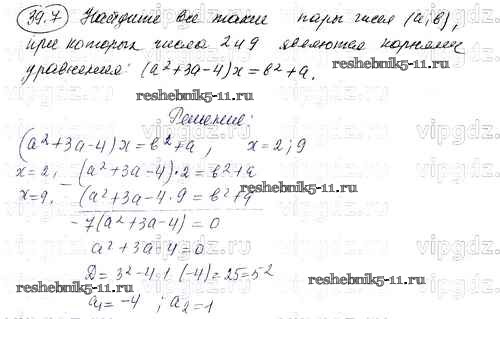 39.7 Найдите все такие пары чисел (a; b),
при которых числа 2 и 9 являются корнями
уравнения: (a²+3a-4)x = b²+a.
reshebnik5-11.ru
reshebnik5-11.ru
Решение:
(a²+3a-4)x = b²+a, x=2; 9
x=2, (a²+3a-4)·2 = b²+a
x=9. (a²+3a-4·9 = b²+a
-7(a²+3a-4) = 0
a²+3a-4=0
D = 3²-4·1·(-4) = 25 = 5²
reshebnik5-11.ru
reshebnik5-11.ru
a₁ = -4 ; a₂ = 1
vipgdz.
vipgdz.
vipgdz.